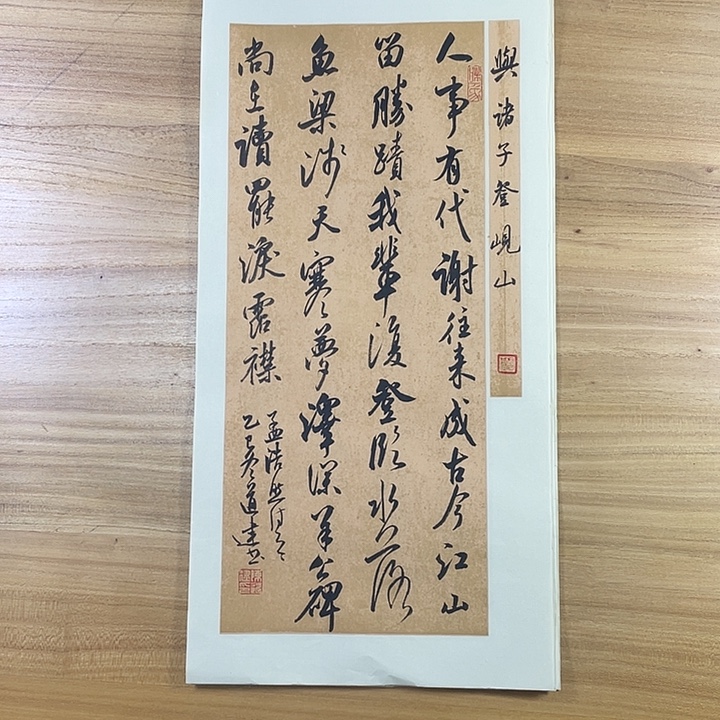 與諸子登峴山
人事有代謝往来成古今江山
留勝蹟我輩復登臨水落
魚梁浅天寒夢澤深羊公碑
尚在讀罷淚霑襟
孟浩然詩
乙巳冬道建书